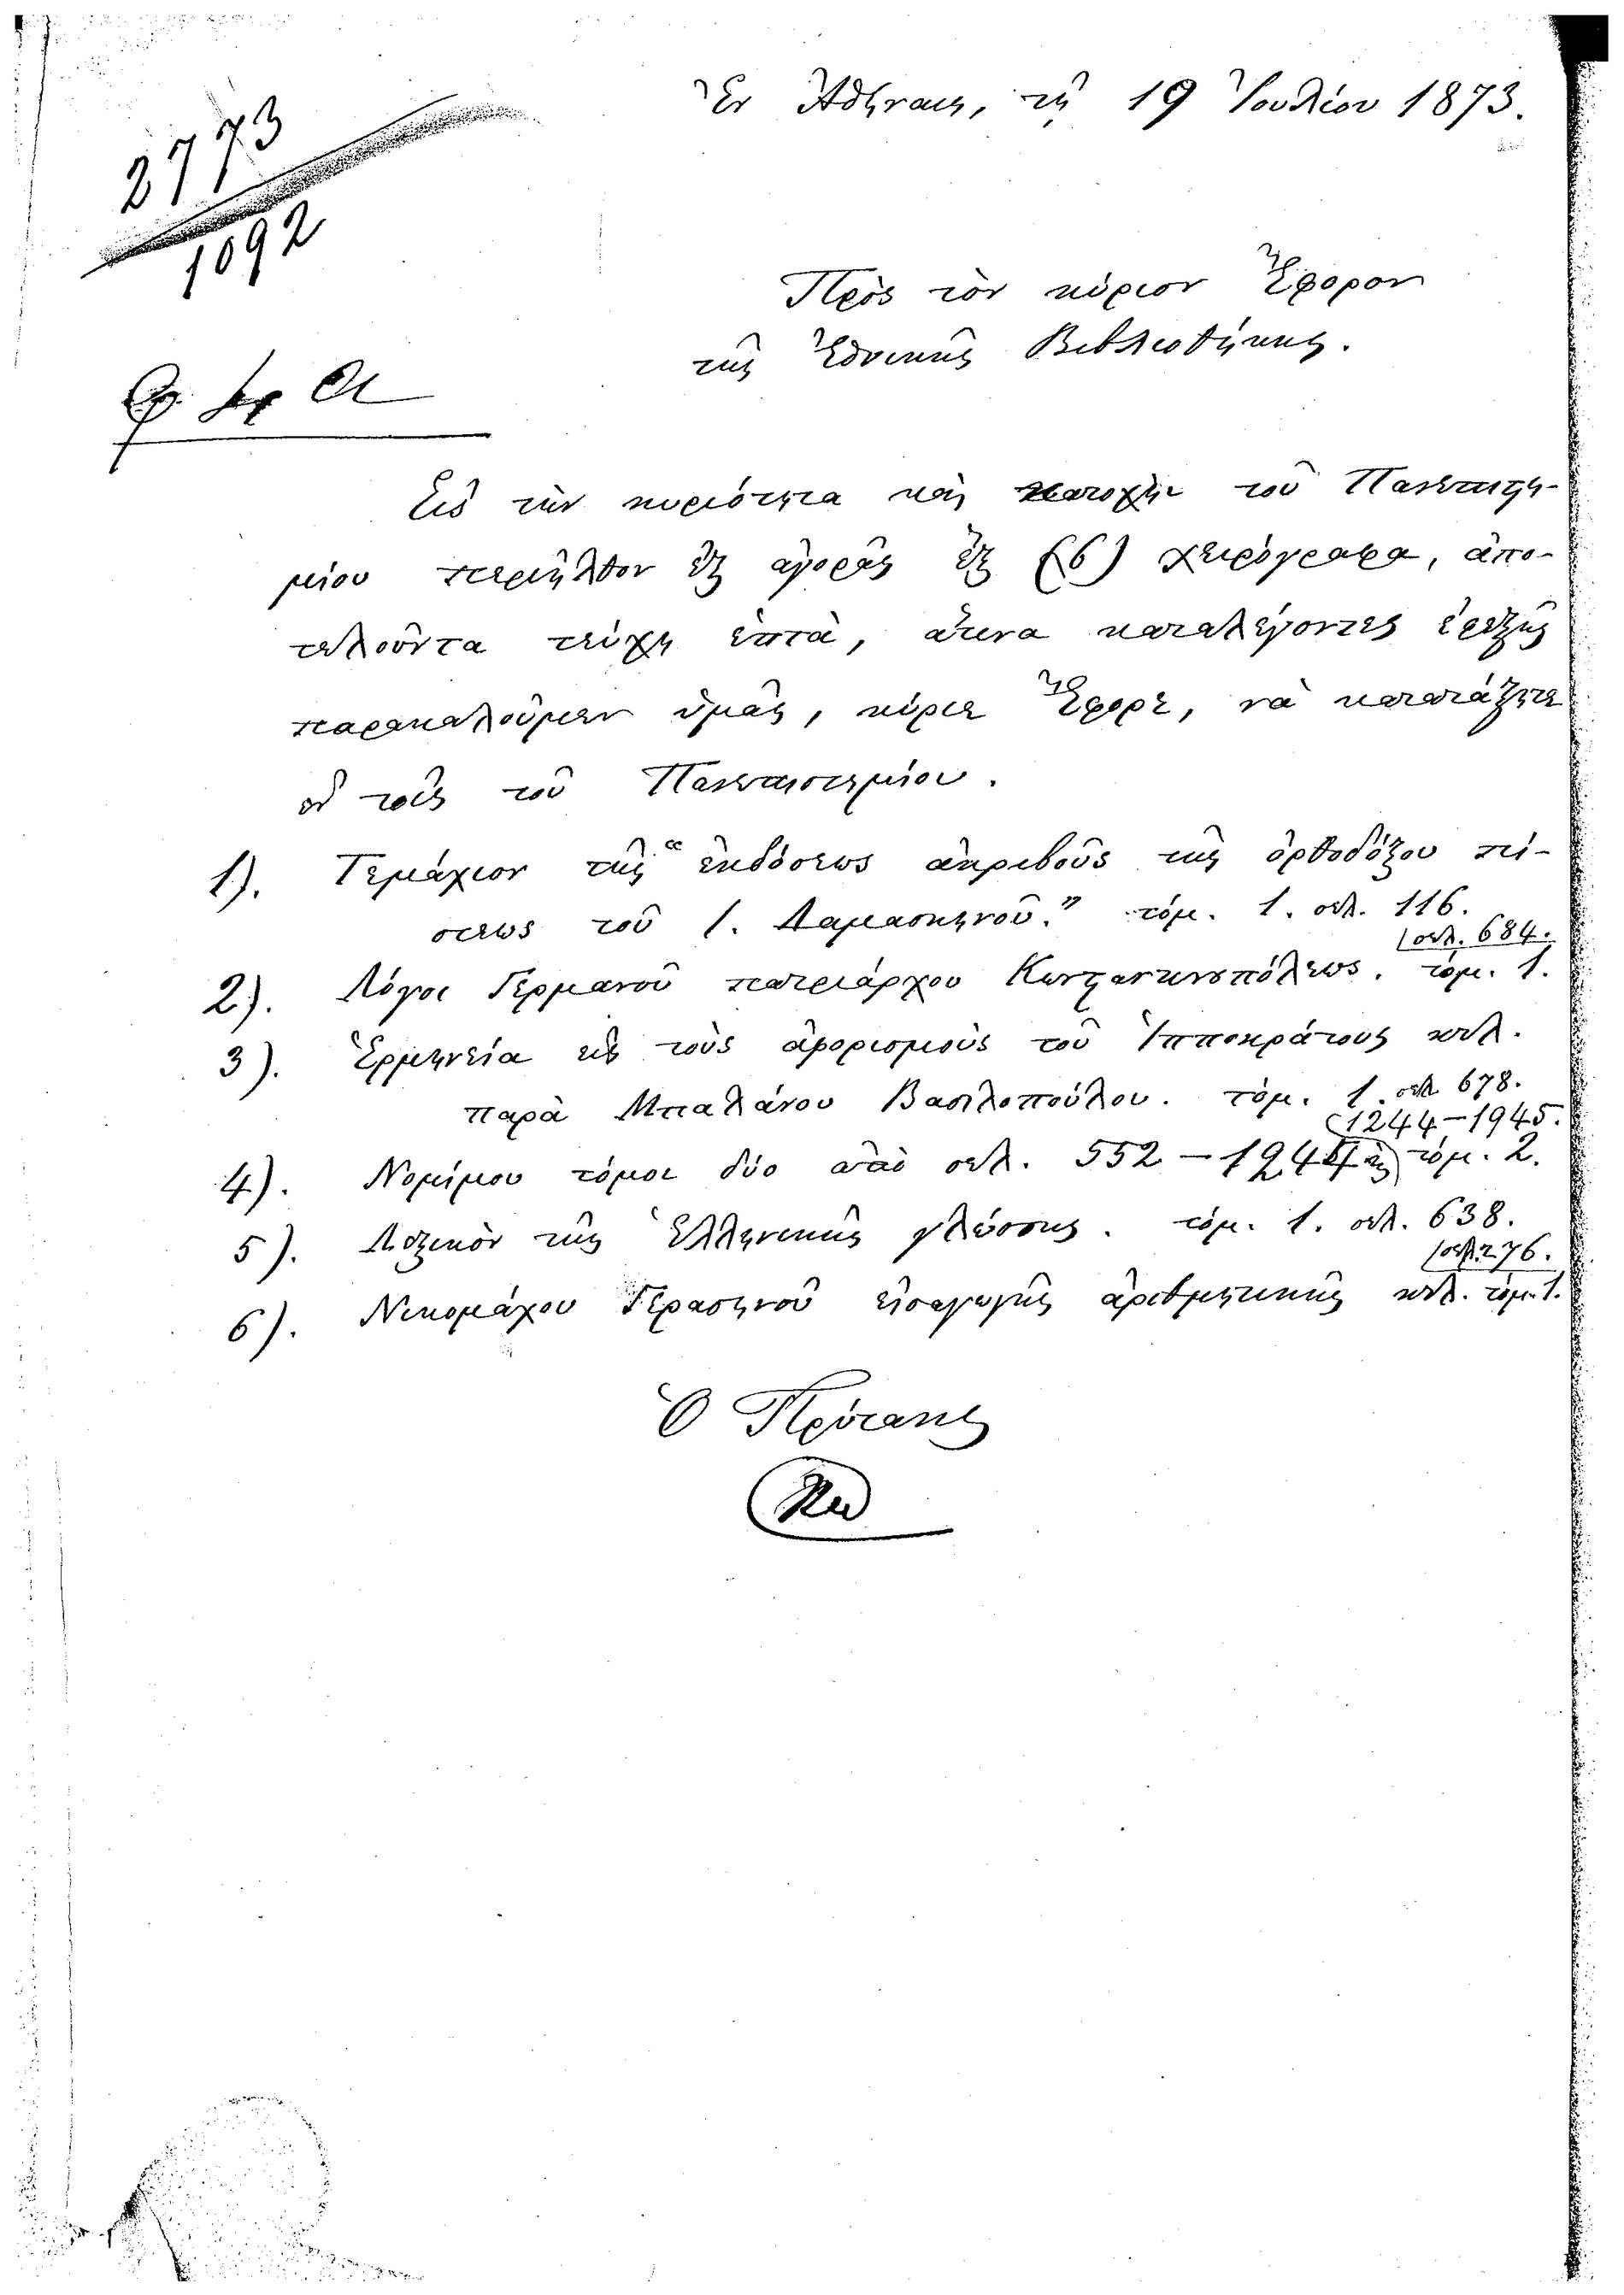 Ἐν Ἀθήναις, τῇ 19 Ἰουλίου 1873.
2773
1092
Πρὸς τὸν κύριον Ἔφορον
τῆς Ἐθνικῆς Βιβλιοθήκης.
Εἰς τὴν κυριότητα καὶ κατοχὴν τοῦ Πανεπιστη-
μίου περιῆλθον ἐξ ἀγορᾶς ἓξ (6) χειρόγραφα, ἀπο-
τελοῦντα τεύχη ἑπτὰ, ἅτινα καταλέγοντες ἐφεξῆς
παρακαλοῦμεν ὑμᾶς, κύριε Ἔφορε, νὰ κατατάξητε
ἐν τοῖς τοῦ Πανεπιστημίου.
1). Τεμάχιον τῆς "ἐκδόσεως ἀκριβοῦς τῆς ὀρθοδόξου πί-
στεως τοῦ Ι. Δαμασκηνοῦ." τόμ. 1. σελ. 116.
2). Λόγοι Γερμανοῦ πατριάρχου Κωνσταντινουπόλεως. τόμ. 1. σελ. 684.
3). Ἑρμηνεία εἰς τοὺς ἀφορισμοὺς τοῦ Ἱπποκράτους κτλ.
παρὰ Μπαλάνου Βασιλοπούλου. τόμ. 1. σελ. 678.
4). Νομίμου τόμοι δύο ἀπὸ σελ. 552-1244 καὶ 1244-1945. τόμ. 2.
5). Λεξικὸν τῆς Ἑλληνικῆς γλώσσης. τόμ. 1. σελ. 638.
6). Νικομάχου Γερασηνοῦ εἰσαγωγῆς ἀριθμητικῆς κτλ. τόμ. 1. σελ. 276.
Ὁ Πρύτανις